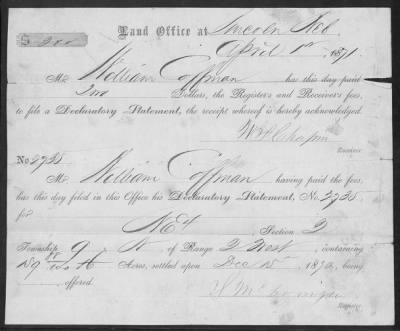 $ 200
Land Office at Lincoln Neb
April 1st 1871.
Mr. William Coffman has this day paid
2 no/ Dollars, the Register's and Receiver's fees,
to file a Declaratory Statement, the receipt whereof is hereby acknowledged.
Receiver
No. 2938
Mr. William Coffman having paid the fees,
has this day filed in this Office his Declaratory Statement, No. 2938
for
NE4 Section 2
Township 9 N of Range 2 West, containing
159 Acres, settled upon Dec 15th 1870, being
offered.
Register